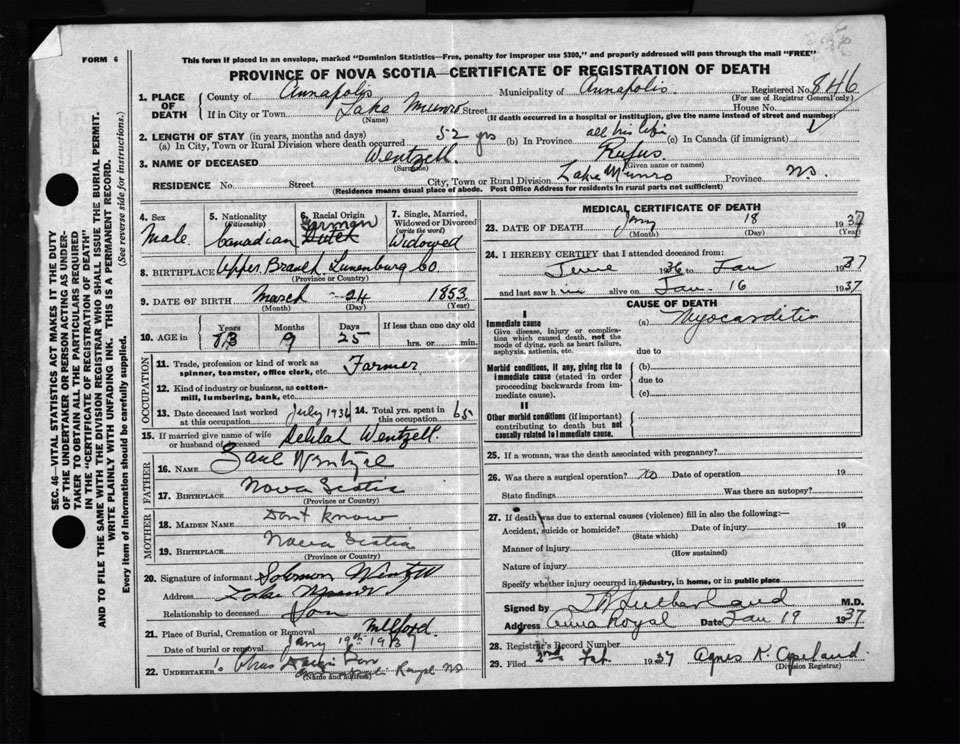 FORM 6
This form if placed in an envelope, marked "Dominion Statistics—Free, penalty for improper use $300," and properly addressed will pass through the mail "FREE"
PROVINCE OF NOVA SCOTIA—CERTIFICATE OF REGISTRATION OF DEATH
1. PLACE OF DEATH
County of Annapolis Municipality of Annapolis Registered No. 846
(For use of Registrar General only)
If in City or Town Lake Munro Street House No.
(Name) (If death occurred in a hospital or institution, give the name instead of street and number)
2. LENGTH OF STAY (in years, months and days)
(a) In City, Town or Rural Division where death occurred 52 yrs (b) In Province all his life (c) In Canada (if immigrant)
3. NAME OF DECEASED Wentzell Rufus
(Surname) (Given name or names)
RESIDENCE No. Street City, Town or Rural Division Lake Munro Province NS.
(Residence means usual place of abode. Post Office Address for residents in rural parts not sufficient)
4. Sex
Male
5. Nationality
(Citizenship)
Canadian
6. Racial Origin
German
Dutch
7. Single, Married, Widowed or Divorced
(write the word)
Widowed
8. BIRTHPLACE Upper Branch Lunenburg Co.
(Province or Country)
9. DATE OF BIRTH March 24 1853
(Month) (Day) (Year)
10. AGE in Years Months Days If less than one day old
83 9 25 hrs. or min.
OCCUPATION
11. Trade, profession or kind of work as spinner, teamster, office clerk, etc. Farmer
12. Kind of industry or business, as cotton-mill, lumbering, bank, etc.
13. Date deceased last worked at this occupation July 1936 14. Total yrs. spent in this occupation 65
15. If married give name of wife or husband of deceased Delilah Wentzell
FATHER
16. NAME Wentzell
17. BIRTHPLACE Nova Scotia
(Province or Country)
MOTHER
18. MAIDEN NAME Dont know
19. BIRTHPLACE Nova Scotia
(Province or Country)
20. Signature of informant Solomon Wentzell
Address Lake Munro
Relationship to deceased Son
21. Place of Burial, Cremation or Removal Milford
Date of burial or removal Jany 19th 1937
22. UNDERTAKER
(Name and address)
MEDICAL CERTIFICATE OF DEATH
23. DATE OF DEATH Jany 18 1937
(Month) (Day) (Year)
24. I HEREBY CERTIFY that I attended deceased from:
June 1936 to Jan 1937
and last saw him alive on Jan. 16 1937
CAUSE OF DEATH
I
Immediate cause
Give disease, injury or complication which caused death, not the mode of dying, such as heart failure, asphyxia, asthenia, etc.
(a) Myocarditis
due to
Morbid conditions, if any, giving rise to immediate cause (stated in order proceeding backwards from immediate cause).
(b)
due to
(c)
II
Other morbid conditions (if important) contributing to death but not causally related to immediate cause.
25. If a woman, was the death associated with pregnancy?
26. Was there a surgical operation? no Date of operation 19
State findings Was there an autopsy?
27. If death was due to external causes (violence) fill in also the following:—
Accident, suicide or homicide? Date of injury 19
(State which)
Manner of injury
(How sustained)
Nature of injury
Specify whether injury occurred in industry, in home, or in public place
Signed by Sutherland M.D.
Address Anna Royal Date Jan 19 1937
28. Registrar's Record Number
29. Filed 2nd Feb 1937 Agnes K. Copeland
(Division Registrar)
SEC. 46—VITAL STATISTICS ACT MAKES IT THE DUTY
OF THE UNDERTAKER OR PERSON ACTING AS UNDER-
TAKER TO OBTAIN ALL THE PARTICULARS REQUIRED
IN THE "CERTIFICATE OF REGISTRATION OF DEATH"
AND TO FILE THE SAME WITH THE DIVISION REGISTRAR WHO SHALL ISSUE THE BURIAL PERMIT.
WRITE PLAINLY WITH UNFADING INK. THIS IS A PERMANENT RECORD.
Every item of Information should be carefully supplied. (See reverse side for instructions.)